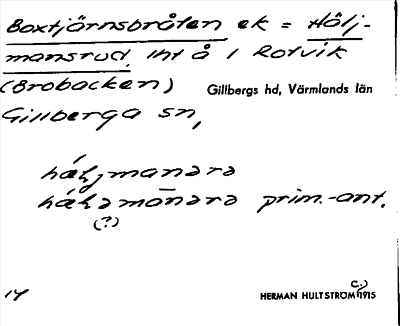 Boxtjärnsbråten ek = Hälj-
mansrud, Int å 1 Rotvik
(Brobacken) Gillbergs hd, Värmlands län
Gillberga sn,
hæljmanəra
hæləmānərə prim.-ant.
(?)
14 HERMAN HULTSTRÖM (C.) 1915